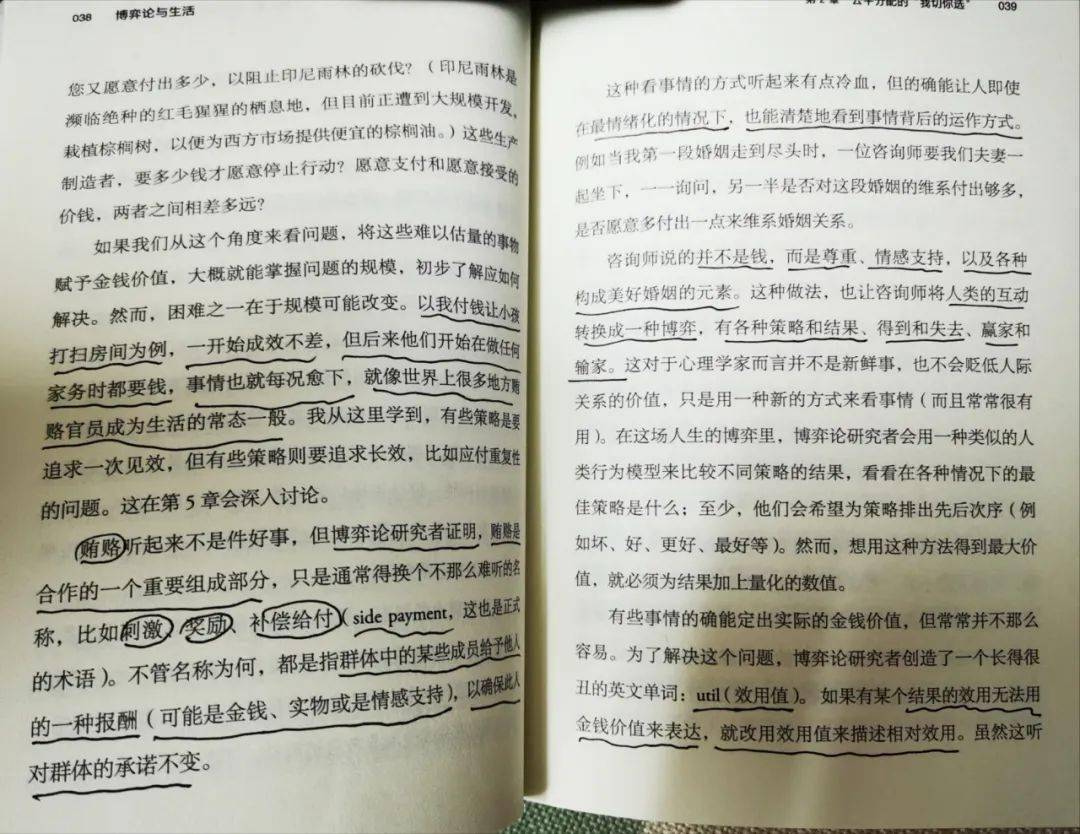 038 博弈论与生活
您又愿意付出多少，以阻止印尼雨林的砍伐？（印尼雨林是
濒临绝种的红毛猩猩的栖息地，但目前正遭到大规模开发，
栽植棕榈树，以便为西方市场提供便宜的棕榈油。）这些生产
制造者，要多少钱才愿意停止行动？愿意支付和愿意接受的
价钱，两者之间相差多远？
如果我们从这个角度来看问题，将这些难以估量的事物
赋予金钱价值，大概就能掌握问题的规模，初步了解应如何
解决。然而，困难之一在于规模可能改变。以我付钱让小孩
打扫房间为例，一开始成效不差，但后来他们开始在做任何
家务时都要钱，事情也就每况愈下，就像世界上很多地方贿
赂官员成为生活的常态一般。我从这里学到，有些策略是要
追求一次见效，但有些策略则要追求长效，比如应付重复性
的问题。这在第 5 章会深入讨论。
贿赂听起来不是件好事，但博弈论研究者证明，贿赂是
合作的一个重要组成部分，只是通常得换个不那么难听的名
称，比如刺激、奖励、补偿给付（side payment，这也是正式
的术语）。不管名称为何，都是指群体中的某些成员给予他人
的一种报酬（可能是金钱、实物或是情感支持），以确保此人
对群体的承诺不变。
第 2 章 公平分配的“我切你选” 039
这种看事情的方式听起来有点冷血，但的确能让人即使
在最情绪化的情况下，也能清楚地看到事情背后的运作方式。
例如当我第一段婚姻走到尽头时，一位咨询师要我们夫妻一
起坐下，一一询问，另一半是否对这段婚姻的维系付出够多，
是否愿意多付出一点来维系婚姻关系。
咨询师说的并不是钱，而是尊重、情感支持，以及各种
构成美好婚姻的元素。这种做法，也让咨询师将人类的互动
转换成一种博弈，有各种策略和结果、得到和失去、赢家和
输家。这对于心理学家而言并不是新鲜事，也不会贬低人际
关系的价值，只是用一种新的方式来看事情（而且常常很有
用）。在这场人生的博弈里，博弈论研究者会用一种类似的人
类行为模型来比较不同策略的结果，看看在各种情况下的最
佳策略是什么；至少，他们会希望为策略排出先后次序（例
如坏、好、更好、最好等）。然而，想用这种方法得到最大价
值，就必须为结果加上量化的数值。
有些事情的确能定出实际的金钱价值，但常常并不那么
容易。为了解决这个问题，博弈论研究者创造了一个长得很
丑的英文单词：util（效用值）。如果有某个结果的效用无法用
金钱价值来表达，就改用效用值来描述相对效用。虽然这听